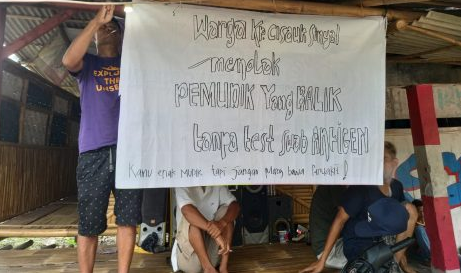 Warga Kp Cisauk Sungai
menolak
PEMUDIK Yang BALIK
tanpa test swab ANTIGEN
Kamu enak mudik tapi jangan pulang bawa Penyakit !
EXPLORE
THE
UNSEEN